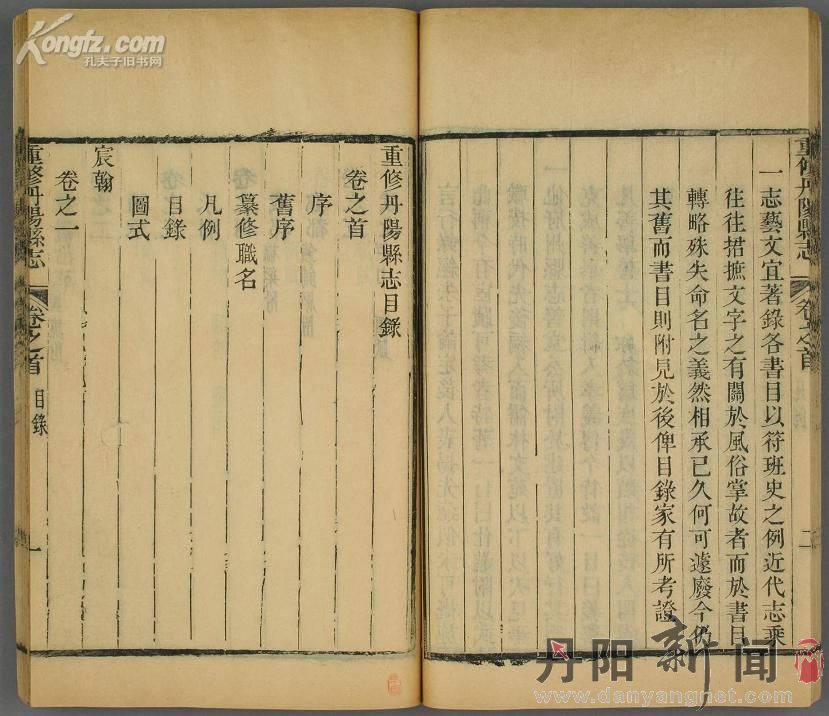 重修丹陽縣志
卷之首
二
一志藝文宜著錄各書目以符班史之例近代志乘
往往捃摭文字之有關於風俗掌故者而於書目
轉略殊失命名之義然相承已久何可遽廢今仍
其舊而書目則附見於後俾目錄家有所考證
重修丹陽縣志目錄
卷之首
序
舊序
纂修職名
凡例
目錄
圖式
宸翰
卷之一
重修丹陽縣志
卷之首
目錄
一
Kongfz.com
孔夫子旧书网
丹阳新闻
www.danyangnet.com